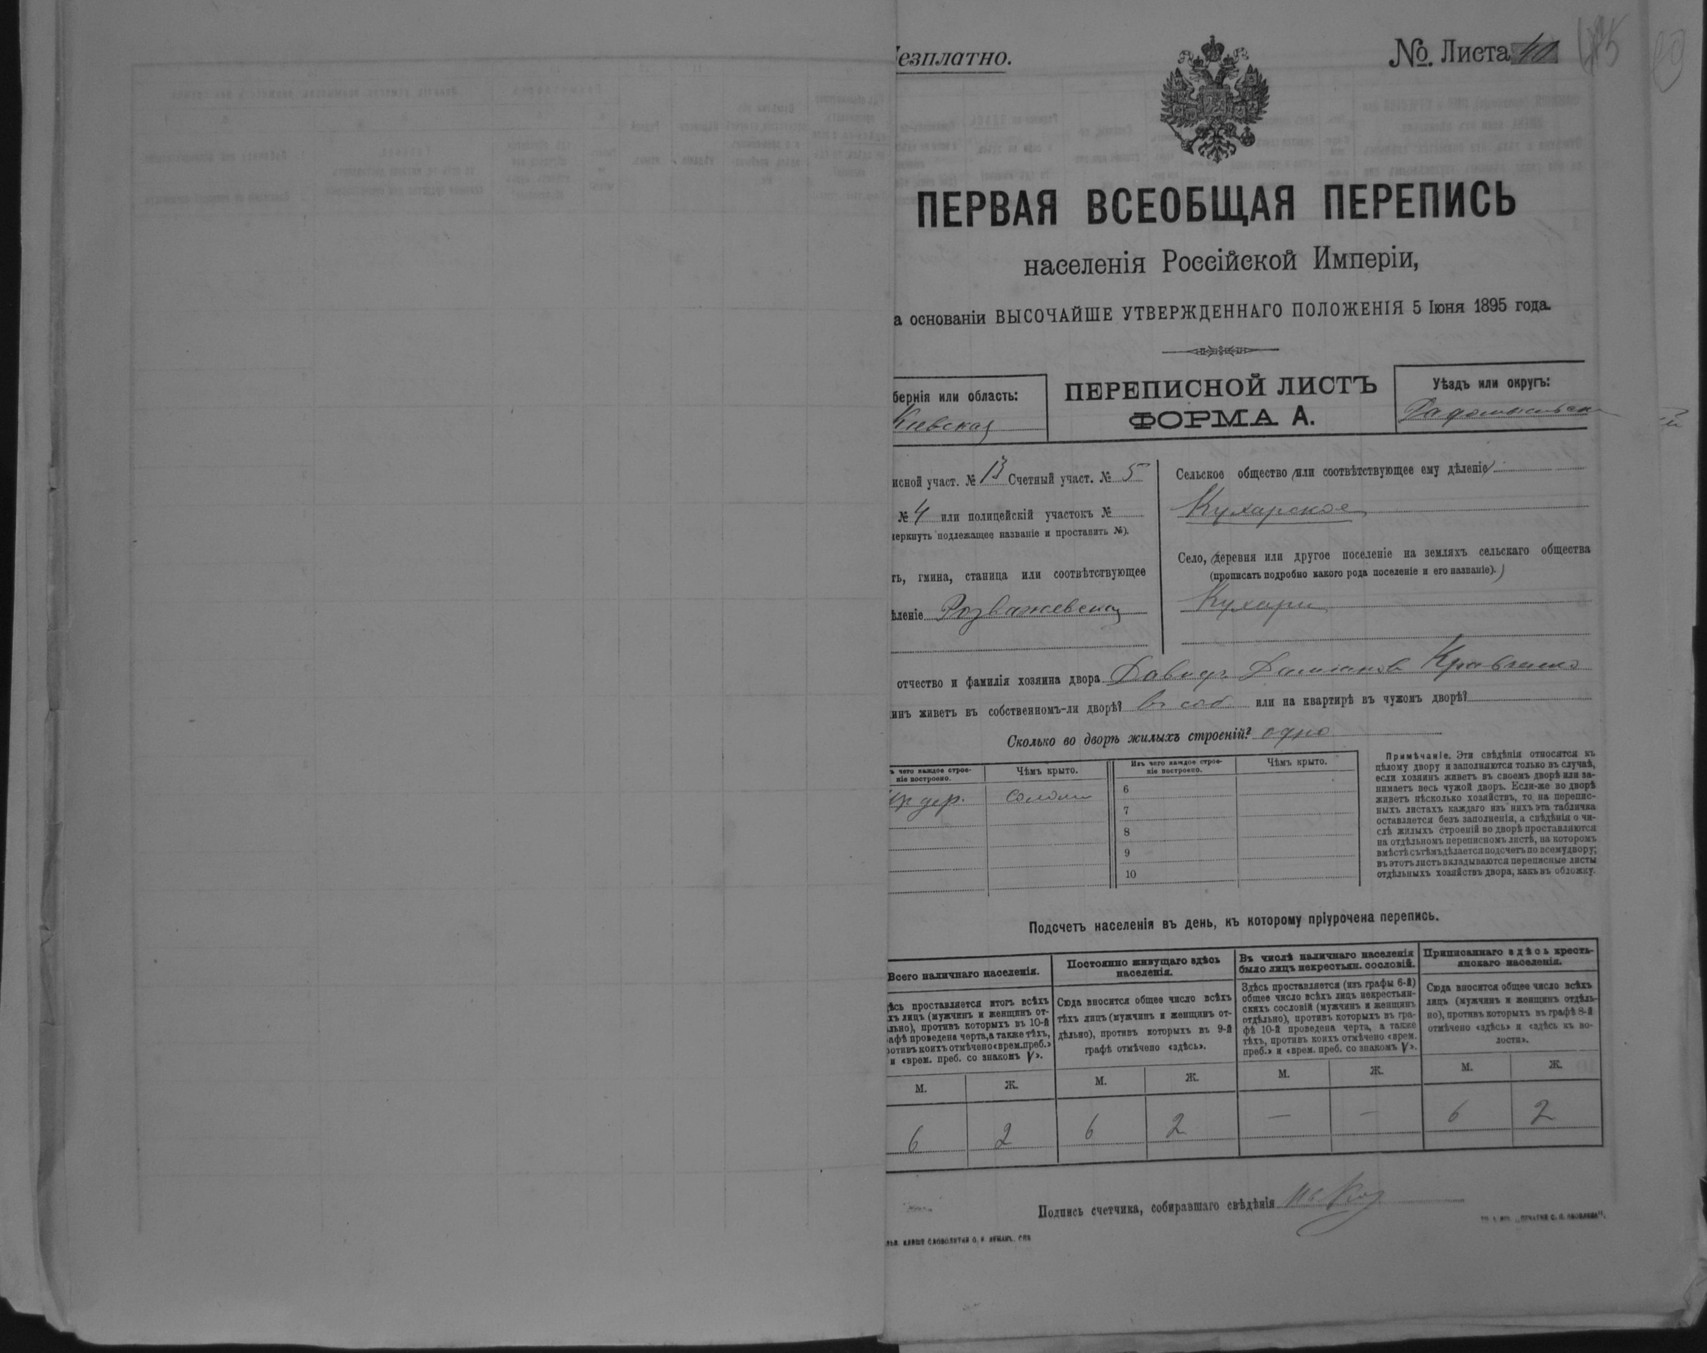 Безплатно.
№ Листа 40
ПЕРВАЯ ВСЕОБЩАЯ ПЕРЕПИСЬ
населенія Россійской Имперіи,
а основаніи ВЫСОЧАЙШЕ УТВЕРЖДЕННАГО ПОЛОЖЕНІЯ 5 Іюня 1895 года.
бернія или область:
Кіевская
ПЕРЕПИСНОЙ ЛИСТЪ
ФОРМА А.
Уѣздъ или округъ:
исной участ. № 13 Счетный участ. № 5
№ 4 или полицейскій участокъ №
черкнуть подлежащее названіе и проставить №).
ть, гмина, станица или соотвѣтствующее
ѣленіе Розважевская
Сельское общество (или соотвѣтствующее ему дѣленіе)
Кухарское
Село, (деревня или другое поселеніе на земляхъ сельскаго общества
(прописать подробно какого рода поселеніе и его названіе).)
Кухари
отчество и фамилія хозяина двора Давидъ Даміановъ Кравченко
инъ живетъ въ собственномъ-ли дворѣ? въ соб. или на квартирѣ въ чужомъ дворѣ?
Сколько во дворѣ жилыхъ строеній? одно
ъ чего каждое строе-
ніе построено.
Чѣмъ крыто.
Изъ чего каждое строе-
ніе построено.
Чѣмъ крыто.
дер. солом
6
7
8
9
10
Примѣчаніе. Эти свѣдѣнія относятся къ
цѣлому двору и заполняются только въ случаѣ,
если хозяинъ живетъ въ своемъ дворѣ или за-
нимаетъ весь чужой дворъ. Если-же во дворѣ
живетъ нѣсколько хозяйствъ, то на перепис-
ныхъ листахъ каждаго изъ нихъ эта табличка
оставляется безъ заполненія, а свѣдѣнія о чи-
слѣ жилыхъ строеній во дворѣ проставляются
на отдѣльномъ переписномъ листѣ, на которомъ
вмѣстѣ съ тѣмъ дѣлается подсчетъ по всему двору;
въ этотъ листъ вкладываются переписные листы
отдѣльныхъ хозяйствъ двора, какъ въ обложку.
Подсчетъ населенія въ день, къ которому пріурочена перепись.
Всего наличнаго населенія.
дѣсь проставляется итогъ всѣхъ
хъ лицъ (мужчинъ и женщинъ от-
льно), противъ которыхъ въ 10-й
афѣ проведена черта, а также тѣхъ,
ротивъ коихъ отмѣчено «врем. преб.»
и «врем. преб. со знакомъ V».
Постоянно живущаго здѣсь
населенія.
Сюда вносится общее число всѣхъ
тѣхъ лицъ (мужчинъ и женщинъ от-
дѣльно), противъ которыхъ въ 9-й
графѣ отмѣчено «здѣсь».
Въ числѣ наличнаго населенія
было лицъ некрестьян. сословій.
Здѣсь проставляется (изъ графы 6-й)
общее число всѣхъ лицъ некрестьян-
скихъ сословій (мужчинъ и женщинъ
отдѣльно), противъ которыхъ въ гра-
фѣ 10-й проведена черта, а также
тѣхъ, противъ коихъ отмѣчено «врем.
преб.» и «врем. преб. со знакомъ V».
Приписаннаго здѣсь кресть-
янскаго населенія.
Сюда вносится общее число всѣхъ
лицъ (мужчинъ и женщинъ отдѣль-
но), противъ которыхъ въ графѣ 8-й
отмѣчено «здѣсь» и «здѣсь къ во-
лости».
М. Ж. М. Ж. М. Ж. М. Ж.
6 2 6 2 — — 6 2
Подпись счетчика, собиравшаго свѣдѣнія